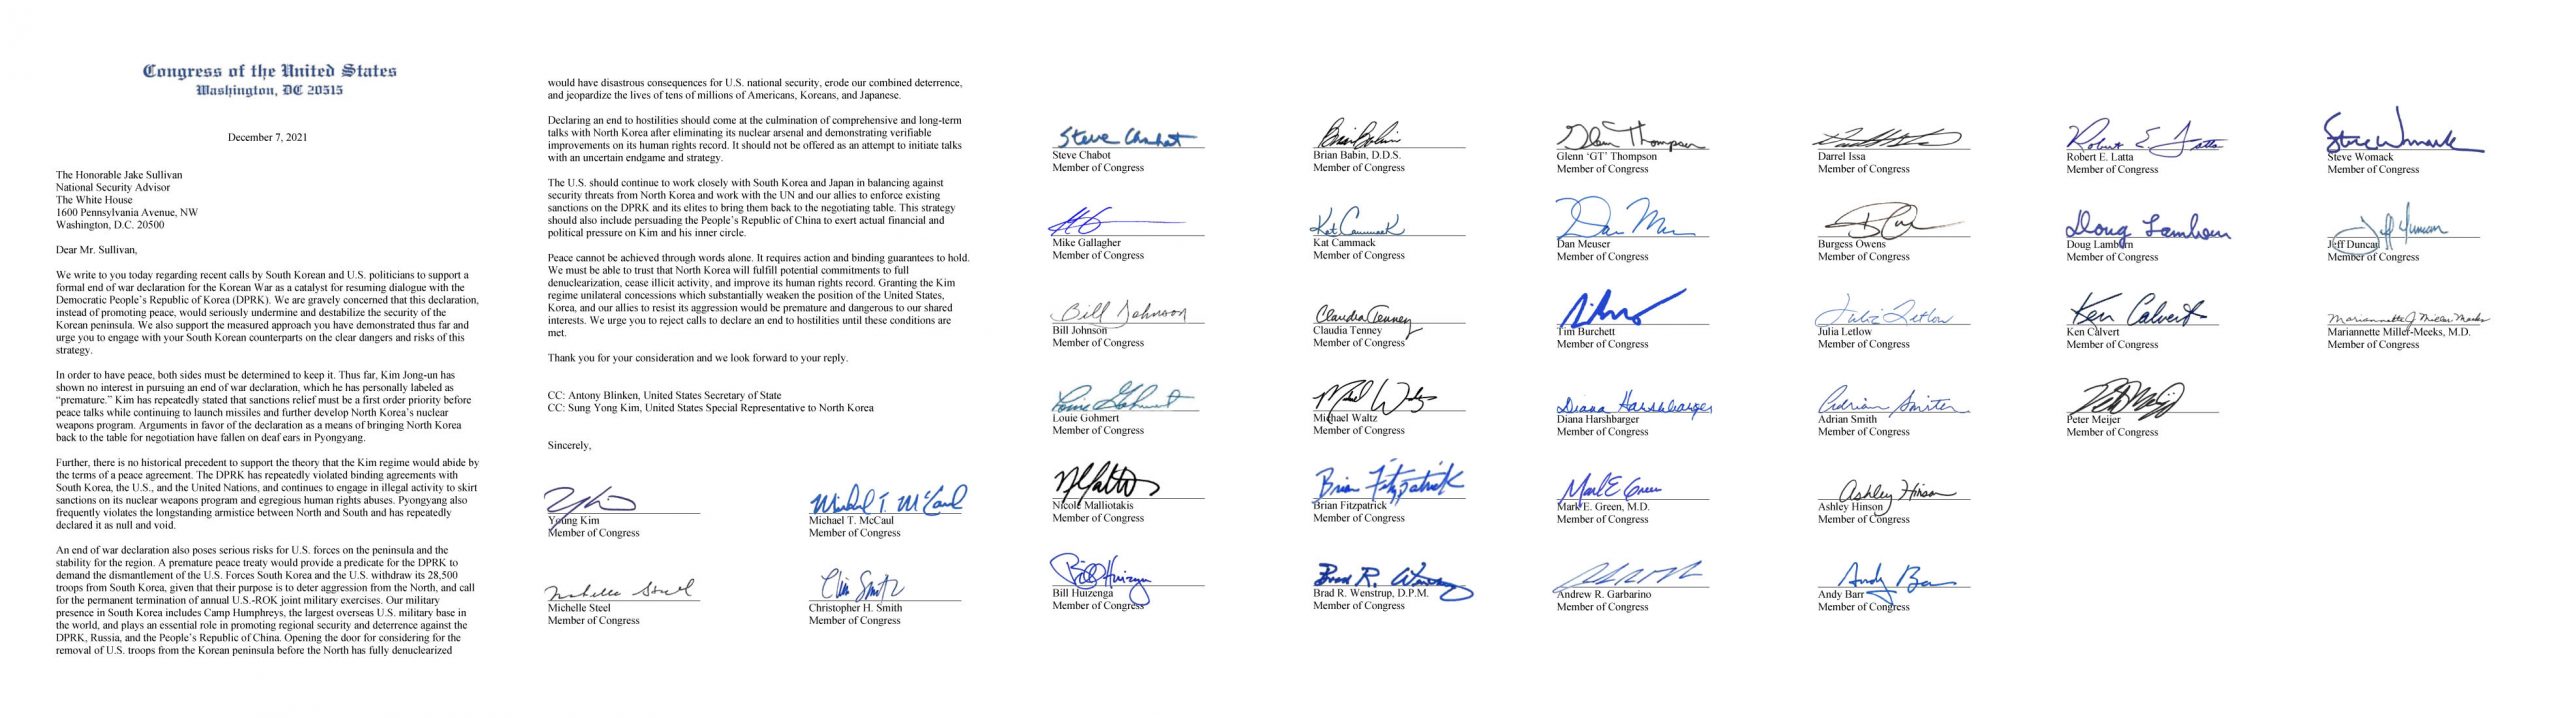 Congress of the United States
Washington, DC 20515
December 7, 2021
The Honorable Jake Sullivan
National Security Advisor
The White House
1600 Pennsylvania Avenue, NW
Washington, D.C. 20500
Dear Mr. Sullivan,
We write to you today regarding recent calls by South Korean and U.S. politicians to support a
formal end of war declaration for the Korean War as a catalyst for resuming dialogue with the
Democratic People's Republic of Korea (DPRK). We are gravely concerned that this declaration,
instead of promoting peace, would seriously undermine and destabilize the security of the
Korean peninsula. We also support the measured approach you have demonstrated thus far and
urge you to engage with your South Korean counterparts on the clear dangers and risks of this
strategy.
In order to have peace, both sides must be determined to keep it. Thus far, Kim Jong-un has
shown no interest in pursuing an end of war declaration, which he has personally labeled as
“premature.” Kim has repeatedly stated that sanctions relief must be a first order priority before
peace talks while continuing to launch missiles and further develop North Korea's nuclear
weapons program. Arguments in favor of the declaration as a means of bringing North Korea
back to the table for negotiation have fallen on deaf ears in Pyongyang.
Further, there is no historical precedent to support the theory that the Kim regime would abide by
the terms of a peace agreement. The DPRK has repeatedly violated binding agreements with
South Korea, the U.S., and the United Nations, and continues to engage in illegal activity to skirt
sanctions on its nuclear weapons program and egregious human rights abuses. Pyongyang also
frequently violates the longstanding armistice between North and South and has repeatedly
declared it as null and void.
An end of war declaration also poses serious risks for U.S. forces on the peninsula and the
stability for the region. A premature peace treaty would provide a predicate for the DPRK to
demand the dismantlement of the U.S. Forces South Korea and the U.S. withdraw its 28,500
troops from South Korea, given that their purpose is to deter aggression from the North, and call
for the permanent termination of annual U.S.-ROK joint military exercises. Our military
presence in South Korea includes Camp Humphreys, the largest overseas U.S. military base in
the world, and plays an essential role in promoting regional security and deterrence against the
DPRK, Russia, and the People's Republic of China. Opening the door for considering for the
removal of U.S. troops from the Korean peninsula before the North has fully denuclearized
would have disastrous consequences for U.S. national security, erode our combined deterrence,
and jeopardize the lives of tens of millions of Americans, Koreans, and Japanese.
Declaring an end to hostilities should come at the culmination of comprehensive and long-term
talks with North Korea after eliminating its nuclear arsenal and demonstrating verifiable
improvements on its human rights record. It should not be offered as an attempt to initiate talks
with an uncertain endgame and strategy.
The U.S. should continue to work closely with South Korea and Japan in balancing against
security threats from North Korea and work with the UN and our allies to enforce existing
sanctions on the DPRK and its elites to bring them back to the negotiating table. This strategy
should also include persuading the People's Republic of China to exert actual financial and
political pressure on Kim and his inner circle.
Peace cannot be achieved through words alone. It requires action and binding guarantees to hold.
We must be able to trust that North Korea will fulfill potential commitments to full
denuclearization, cease illicit activity, and improve its human rights record. Granting the Kim
regime unilateral concessions which substantially weaken the position of the United States,
Korea, and our allies to resist its aggression would be premature and dangerous to our shared
interests. We urge you to reject calls to declare an end to hostilities until these conditions are
met.
Thank you for your consideration and we look forward to your reply.
CC: Antony Blinken, United States Secretary of State
CC: Sung Yong Kim, United States Special Representative to North Korea
Sincerely,
Young Kim
Member of Congress
Michael T. McCaul
Michael T. McCaul
Member of Congress
Michelle Steel
Michelle Steel
Member of Congress
Chris Smith
Christopher H. Smith
Member of Congress
Steve Chabot
Steve Chabot
Member of Congress
Mike Gallagher
Member of Congress
Bill Johnson
Bill Johnson
Member of Congress
Louie Gohmert
Louie Gohmert
Member of Congress
Nicole Malliotakis
Member of Congress
Bill Huizenga
Bill Huizenga
Member of Congress
Brian Babin
Brian Babin, D.D.S.
Member of Congress
Kat Cammack
Kat Cammack
Member of Congress
Claudia Tenney
Claudia Tenney
Member of Congress
Michael Waltz
Member of Congress
Brian Fitzpatrick
Brian Fitzpatrick
Member of Congress
Brad R. Wenstrup
Brad R. Wenstrup, D.P.M.
Member of Congress
Glenn Thompson
Glenn ‘GT’ Thompson
Member of Congress
Dan Meuser
Member of Congress
Tim Burchett
Member of Congress
Diana Harshbarger
Diana Harshbarger
Member of Congress
Mark E Green
Mark E. Green, M.D.
Member of Congress
Andrew R. Garbarino
Member of Congress
Darrel Issa
Member of Congress
Burgess Owens
Member of Congress
Julia Letlow
Julia Letlow
Member of Congress
Adrian Smith
Adrian Smith
Member of Congress
Ashley Hinson
Ashley Hinson
Member of Congress
Andy Barr
Andy Barr
Member of Congress
Robert E. Latta
Robert E. Latta
Member of Congress
Doug Lamborn
Doug Lamborn
Member of Congress
Ken Calvert
Ken Calvert
Member of Congress
Peter Meijer
Member of Congress
Steve Womack
Steve Womack
Member of Congress
Jeff Duncan
Jeff Duncan
Member of Congress
Mariannette J Miller-Meeks
Mariannette Miller-Meeks, M.D.
Member of Congress